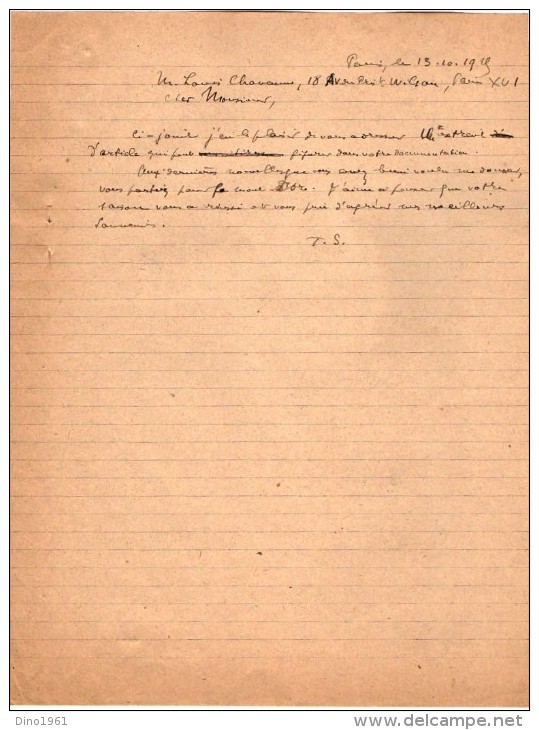 Paris, le 13.10.19
M. Louis Chavanne, 18 Av Wilson, Paris XVI
Cher Monsieur,
Ci-joint j'ai le plaisir de vous adresser extrait
d'article qui peut figurer dans votre documentation.
Aux dernières nouvelles que vous avez bien voulu me donner,
vous partiez pour le mont Dore. J'aime à penser que votre
saison vous a réussi et vous prie d'agréer mes meilleurs
souvenirs.
T. S.
Dino1961
www.delcampe.net